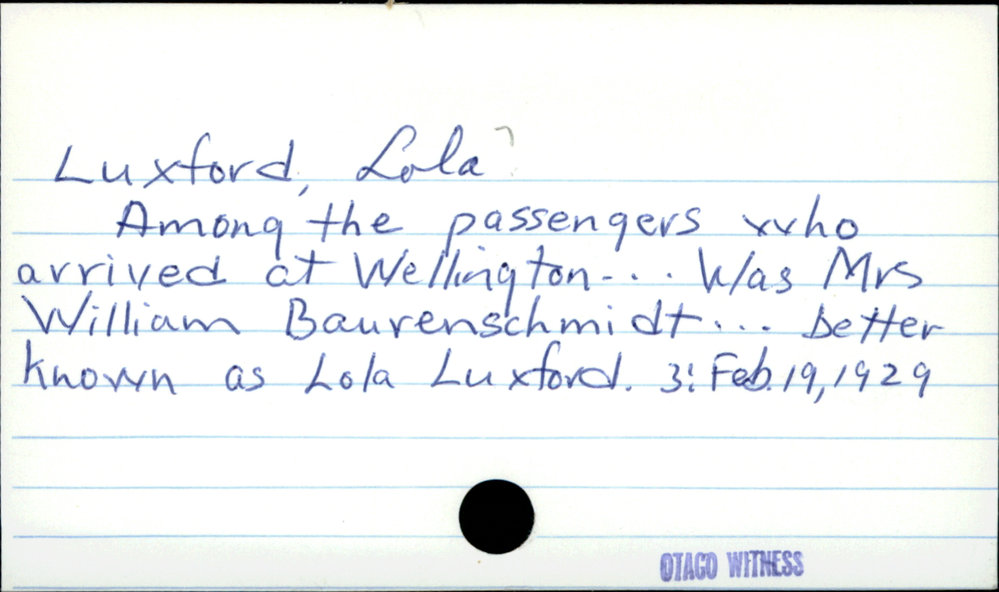 Luxford, Lola?
Among the passengers who
arrived at Wellington... Was Mrs
William Baurenschmidt... better
known as Lola Luxford. 3: Feb. 19, 1929
OTAGO WITNESS